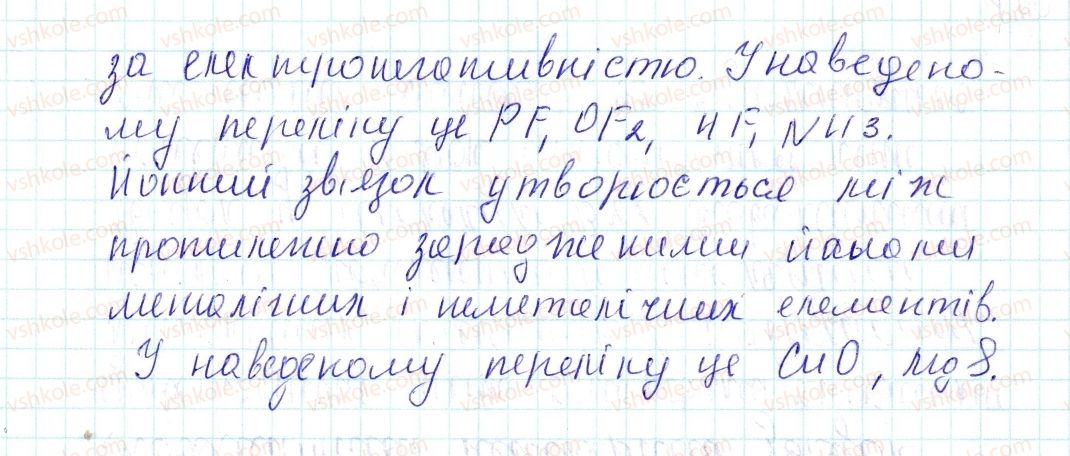 за електронегативністю. У наведено-
му переліку це PF, OF2, HF, NH3.
Йонний зв'язок утворюється між
протилежно зарядженими йонами
металічних і неметалічних елементів.
У наведеному переліку це CuO, MgS.